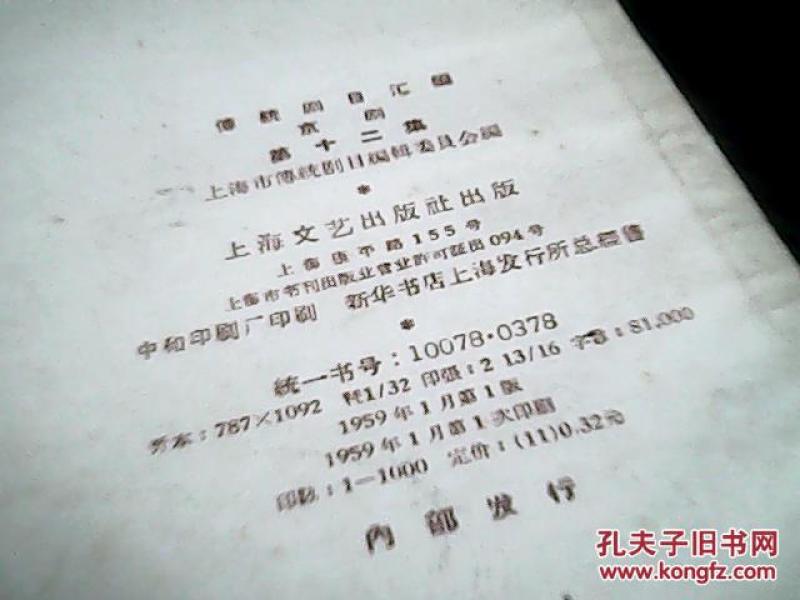 傳統剧目汇編
京剧
第十二集
上海市傳統剧目編輯委員会編
*
上海文艺出版社出版
上海康平路155号
上海市书刊出版业营业許可証出094号
中和印刷厂印刷 新华书店上海发行所总經售
*
統一书号:10078·0378
开本:787×1092 1/32 印張:2 13/16 字数:81,000
1959年1月第1版
1959年1月第1次印刷
印数:1—1000 定价:(11)0.32元
內部发行
孔夫子旧书网
www.kongfz.com